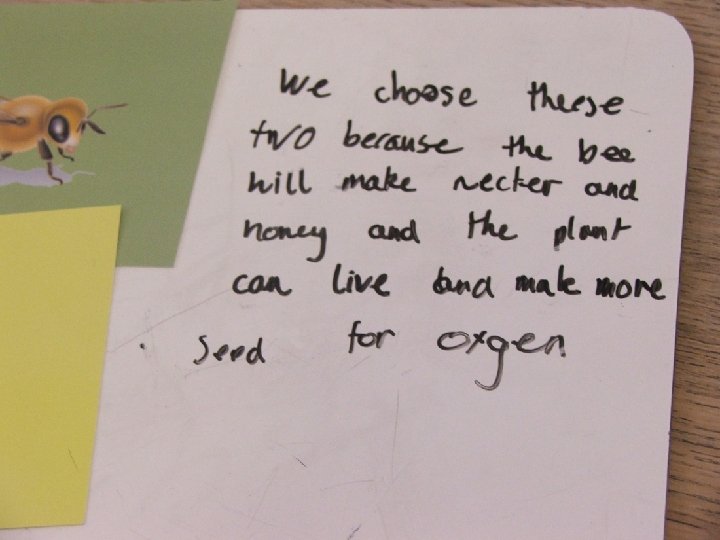 We choose these
two because the bee
will make necter and
honey and the plant
can live and make more
seed for oxgen